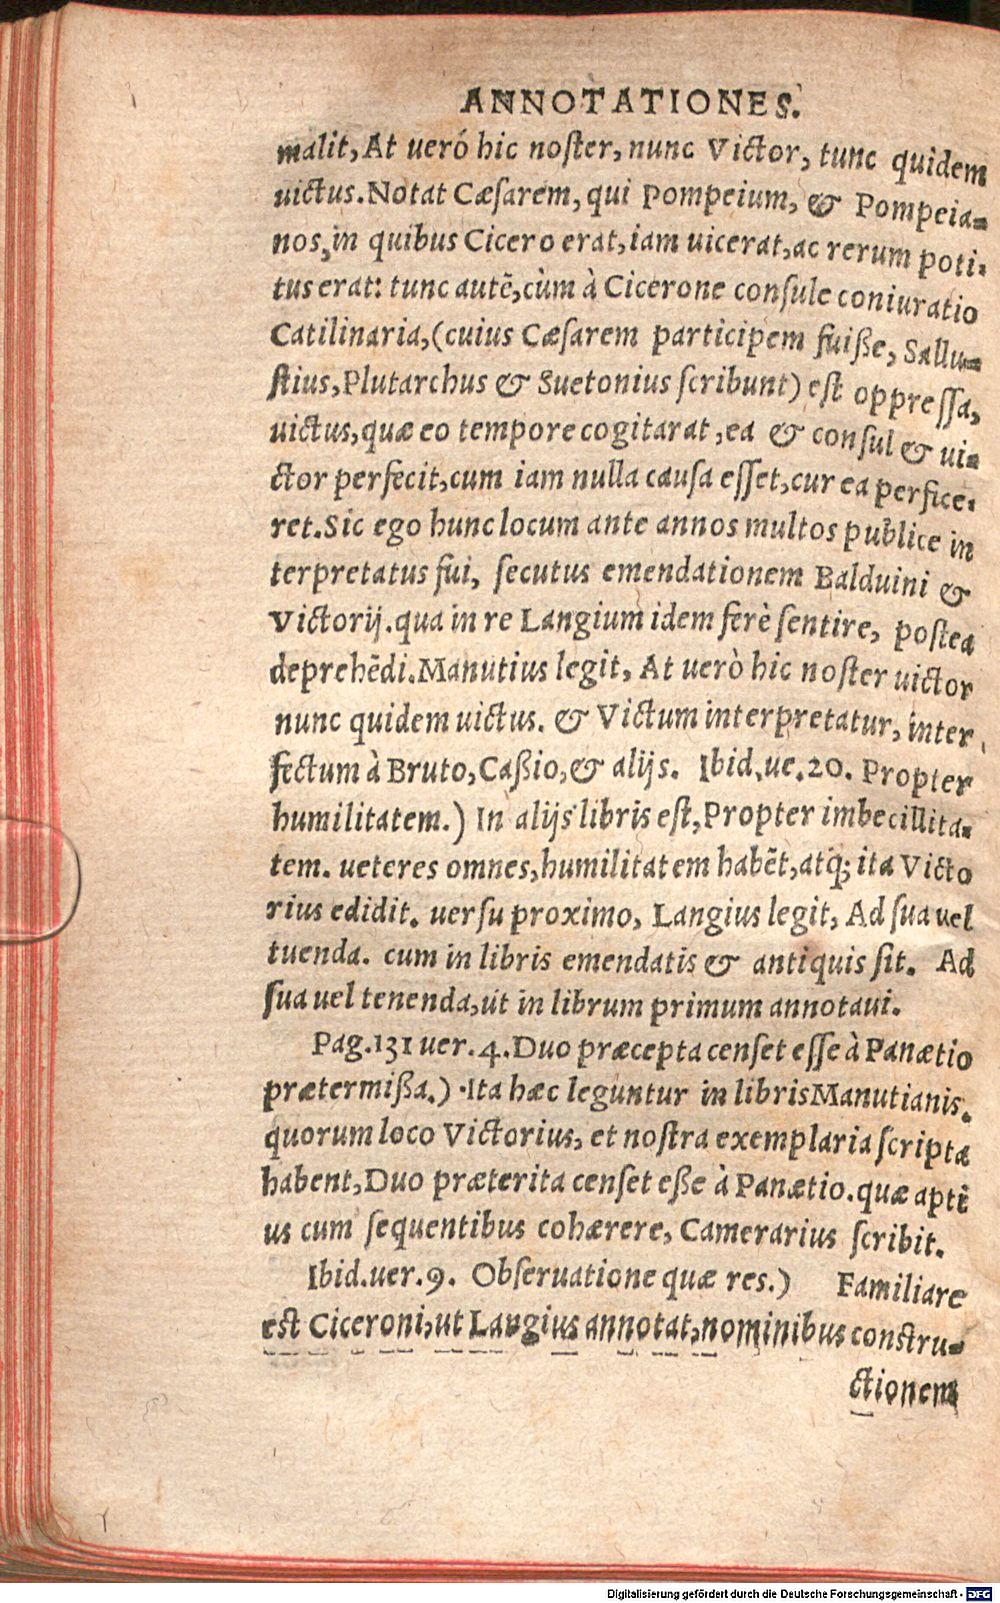 ANNOTATIONES.
malit, At ueró hic noſter, nunc Victor, tunc quidem
uictus. Notat Cæſarem, qui Pompeium, & Pompeia-
nos, in quibus Cicero erat, iam uicerat, ac rerum poti-
tus erat: tunc autē, cùm à Cicerone conſule coniuratio
Catilinaria, (cuius Cæſarem participem fuiße, Sallu-
ſtius, Plutarchus & Suetonius ſcribunt) eſt oppreſſa,
uictus, quæ eo tempore cogitarat, ea & conſul & ui-
ctor perfecit, cum iam nulla cauſa eſſet, cur ea perfice-
ret. Sic ego hunc locum ante annos multos publice in
terpretatus fui, ſecutus emendationem Balduini &
Victorij. qua in re Langium idem ferè ſentire, poſtea
deprehēdi. Manutius legit, At uerò hic noſter uictor
nunc quidem uictus. & Victum interpretatur, inter
fectum à Bruto, Caßio, & alijs. Ibid. ue. 20. Propter
humilitatem.) In alijs libris eſt, Propter imbecillita-
tem. ueteres omnes, humilitatem habēt, atq; ita Victo
rius edidit. uerſu proximo, Langius legit, Ad ſua uel
tuenda. cum in libris emendatis & antiquis ſit. Ad
ſua uel tenenda, ut in librum primum annotaui.
Pag. 131 uer. 4. Duo præcepta cenſet eſſe à Panætio
prætermißa.) Ita hæc leguntur in libris Manutianis.
quorum loco Victorius, et noſtra exemplaria ſcripta
habent, Duo præterita cenſet eße à Panætio. quæ apti
us cum ſequentibus cohærere, Camerarius ſcribit.
Ibid. uer. 9. Obſeruatione quæ res.) Familiare
est Ciceroni, ut Langius annotat, nominibus constru-
ctionem
Digitalisierung gefördert durch die Deutsche Forschungsgemeinschaft - DFG